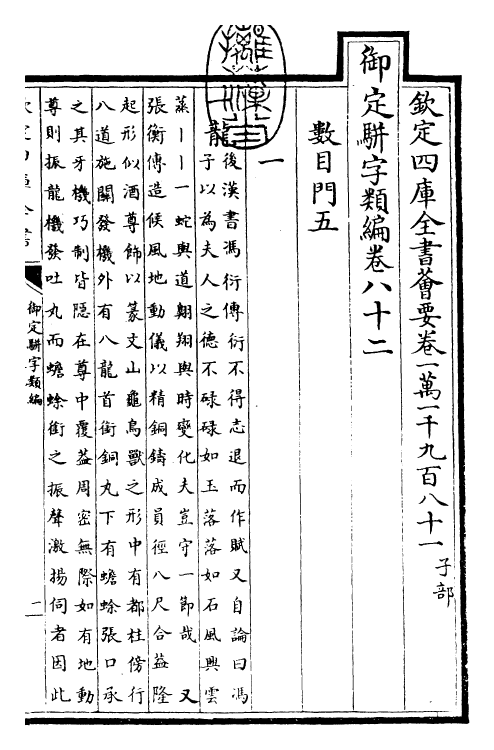 欽定四庫全書薈要卷一萬一千九百八十一 子部
御定駢字類編卷八十二
數目門五
一
一龍
後漢書馮衍傳衍不得志退而作賦又自論曰馮
子以為夫人之德不碌碌如玉落落如石風興雲
蒸丨丨一蛇與道翺翔與時變化夫豈守一節哉 又
張衡傳造候風地動儀以精銅鑄成員徑八尺合蓋隆
起形似酒尊飾以篆文山龜鳥獸之形中有都柱傍行
八道施關發機外有八龍首銜銅丸下有蟾蜍張口承
之其牙機巧制皆隱在尊中覆蓋周密無際如有地動
尊則振龍機發吐丸而蟾蜍銜之振聲激揚伺者因此
御定駢字類編